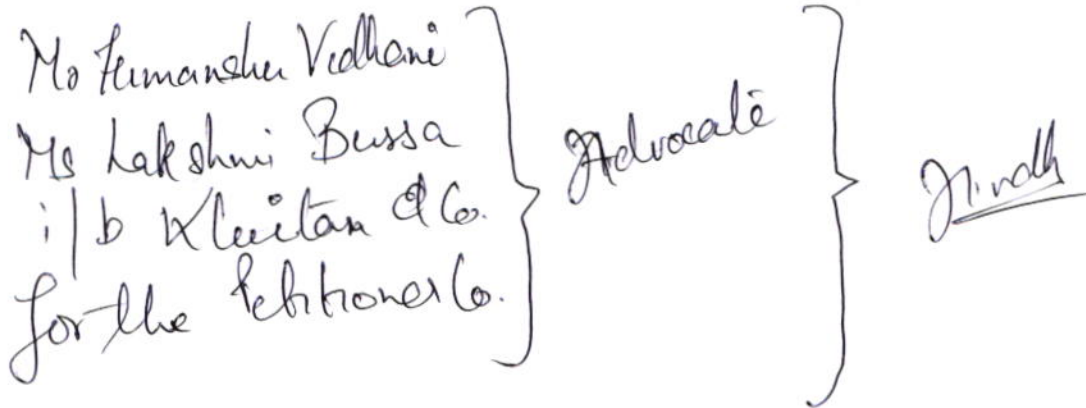 Mr Humanshu Vidhani
Ms Lakshmi Bussa
i/b Khaitan & Co.
for the Petitioner Co.
Advocate